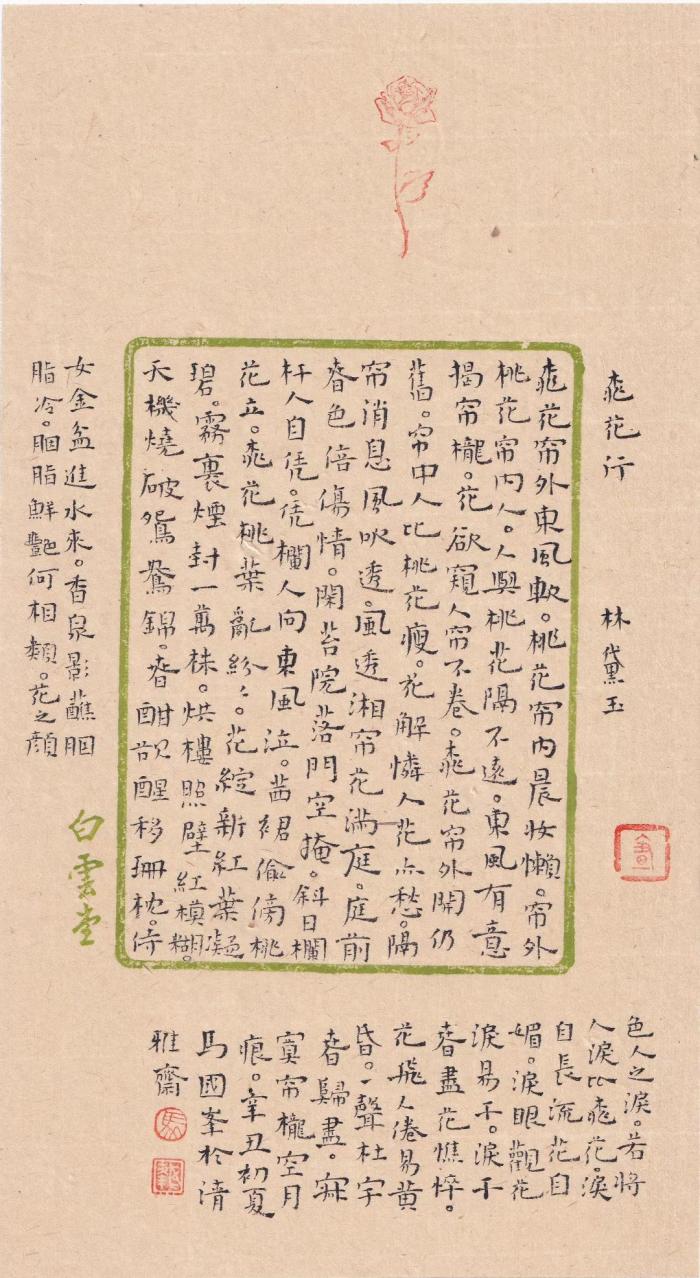 桃花行 林黛玉
桃花帘外東風軟。桃花帘内晨妝懶。帘外
桃花帘内人。人與桃花隔不遠。東風有意
揭帘櫳。花欲窺人帘不卷。桃花帘外開仍
舊。帘中人比桃花瘦。花解憐人花亦愁。隔
帘消息風吹透。風透湘帘花滿庭。庭前
春色倍傷情。閑苔院落門空掩。斜日欄
杆人自凭。凭欄人向東風泣。茜裙偷傍桃
花立。桃花桃葉亂紛々。花綻新紅葉凝
碧。霧裏煙封一萬株。烘樓照壁紅模糊。
天機燒破鴛鴦錦。春酣欲醒移珊枕。侍
女金盆進水來。香泉影蘸胭
脂冷。胭脂鮮艷何相類。花之顔
白雲堂
色人之淚。若將
人淚比桃花。淚
自長流花自
媚。淚眼觀花
淚易干。淚干
春盡花憔悴。
花飛人倦易黄
昏。一聲杜宇
春歸盡。寂
寞帘櫳空月
痕。辛丑初夏
馬國峯於清
雅齋
馬